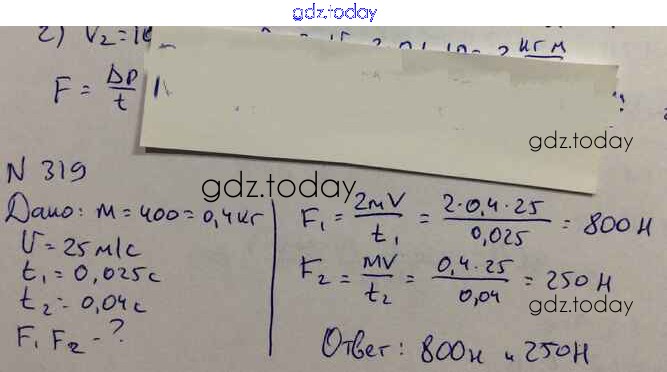 gdz.today
2) V₂=
F = Δp/t
gdz.today
N 319
gdz.today
Дано: m = 400 = 0,4 кг
V = 25 м/с
t₁ = 0,025 с
t₂ = 0,04 с
F₁ F₂ - ?
F₁ = 2mV/t₁ = 2·0,4·25/0,025 = 800 Н
F₂ = mV/t₂ = 0,4·25/0,04 = 250 Н
gdz.today
Ответ: 800 н и 250 Н